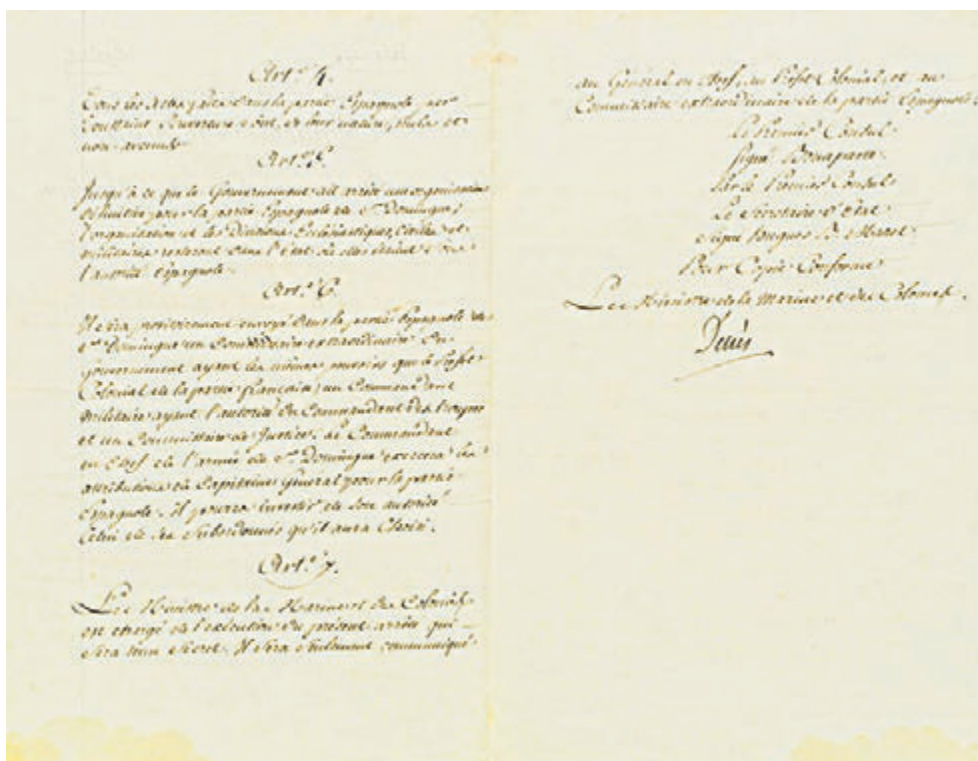 Art.e 4.
Tous les Actes faits dans la partie Espagnole par
Toussaint Louverture sont, de leur nature, nuls et
non avenus.
Art.e 5.
Jusqu'à ce que le Gouvernement ait arrêté une organisation
définitive pour la partie Espagnole de St. Domingue,
l'organisation et les Divisions Ecclésiastiques, Civiles et
militaires resteront dans l'état où elles étaient sous
l'autorité Espagnole.
Art.e 6.
Il sera envoyé dans la partie Espagnole de
St. Domingue un Commissaire extraordinaire du
Gouvernement ayant les mêmes pouvoirs que le Préfet
Colonial de la partie française, un Commandant
Militaire ayant l'autorité du Commandant des troupes
et un Commissaire de Justice. Le Commandant
en Chef de l'armée de St. Domingue exercera les
attributions de Capitaine Général pour la partie
Espagnole. il pourra investir de son autorité
Celui de ses Subordonnés qu'il aura Choisi.
Art.e 7.
Le Ministre de la Marine et des Colonies
est chargé de l'exécution du présent arrêté qui
sera tenu Secret. Il sera seulement communiqué
au Général en Chef, au Préfet Colonial, et au
Commissaire extraordinaire de la partie Espagnole.
Le Premier Consul
signé Bonaparte.
Par le Premier Consul
Le Secrétaire d'état
signé hugues B. Maret
Pour Copie Conforme
Le Ministre de la Marine et des Colonies.
Decrès